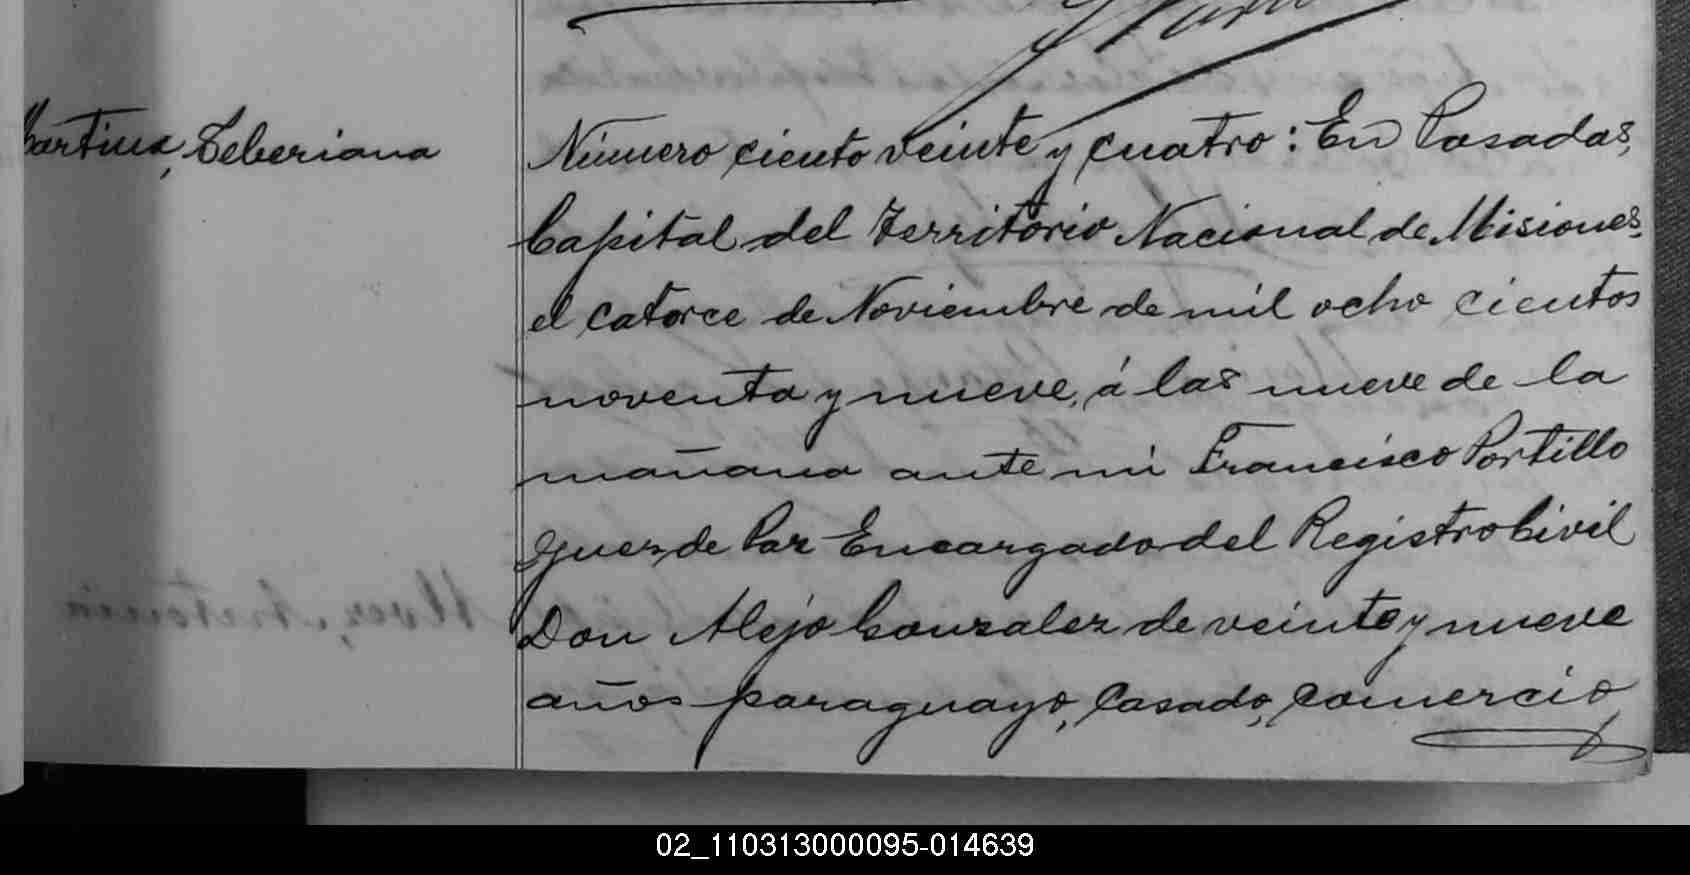 Martina, Seberiana
Número ciento veinte y cuatro: En Posadas,
Capital del Territorio Nacional de Misiones,
el catorce de Noviembre de mil ocho cientos
noventa y nueve, á las nueve de la
mañana ante mi Francisco Portillo
Juez de Paz Encargado del Registro Civil
Don Alejo Gonzalez de veinte y nueve
años paraguayo, Casado, Comercio
02_110313000095-014639